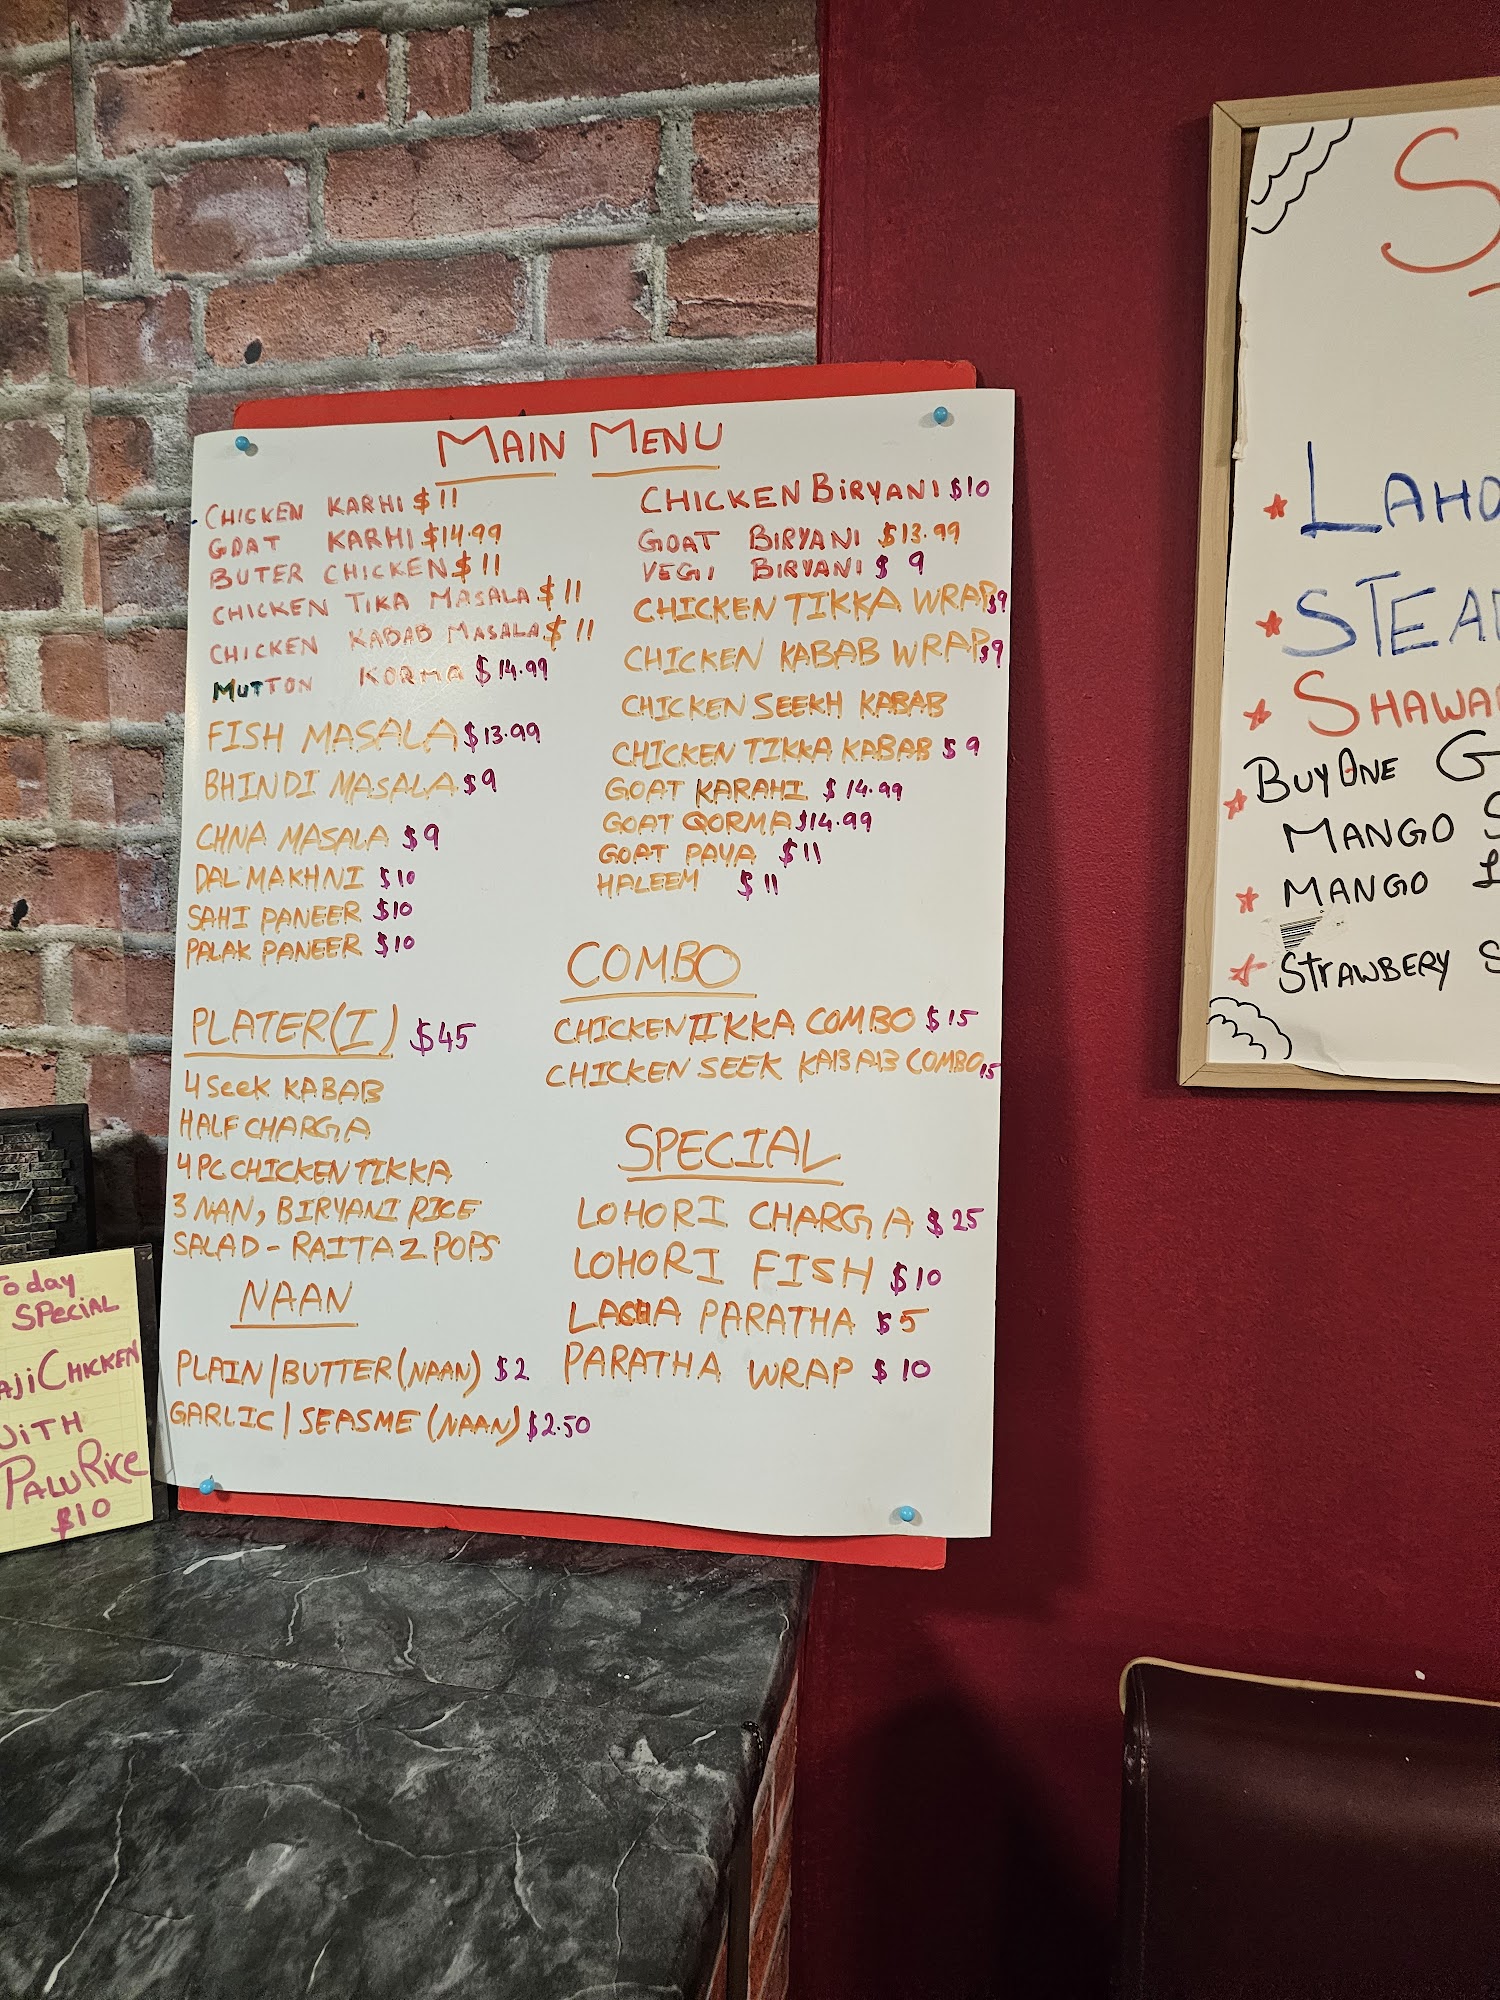 MAIN MENU
CHICKEN KARHI $11
GOAT KARHI $14.99
BUTER CHICKEN $11
CHICKEN TIKA MASALA $11
CHICKEN KABAB MASALA $11
MUTTON KORMA $14.99
FISH MASALA $13.99
BHINDI MASALA $9
CHNA MASALA $9
DAL MAKHNI $10
SAHI PANEER $10
PALAK PANEER $10
PLATER(I) $45
4 SEEK KABAB
HALF CHARGA
4 PC CHICKEN TIKKA
3 NAN, BIRYANI RICE
SALAD - RAITA 2 POPS
NAAN
PLAIN/BUTTER (NAAN) $2
GARLIC/SEASME (NAAN) $2.50
CHICKEN BIRYANI $10
GOAT BIRYANI $13.99
VEGI BIRYANI $9
CHICKEN TIKKA WRAP $9
CHICKEN KABAB WRAP $9
CHICKEN SEEKH KABAB
CHICKEN TIKKA KABAB $9
GOAT KARAHI $14.99
GOAT QORMA $14.99
GOAT PAYA $11
HALEEM $11
COMBO
CHICKEN TIKKA COMBO $15
CHICKEN SEEK KABAB COMBO 15
SPECIAL
LOHORI CHARGA $25
LOHORI FISH $10
LACHA PARATHA $5
PARATHA WRAP $10
Today
SPECIAL
CHICKEN
WITH
PALU RICE
$10
S
LAHO
STEA
SHAWA
BUY ONE G
MANGO S
MANGO
STRAWBERY S